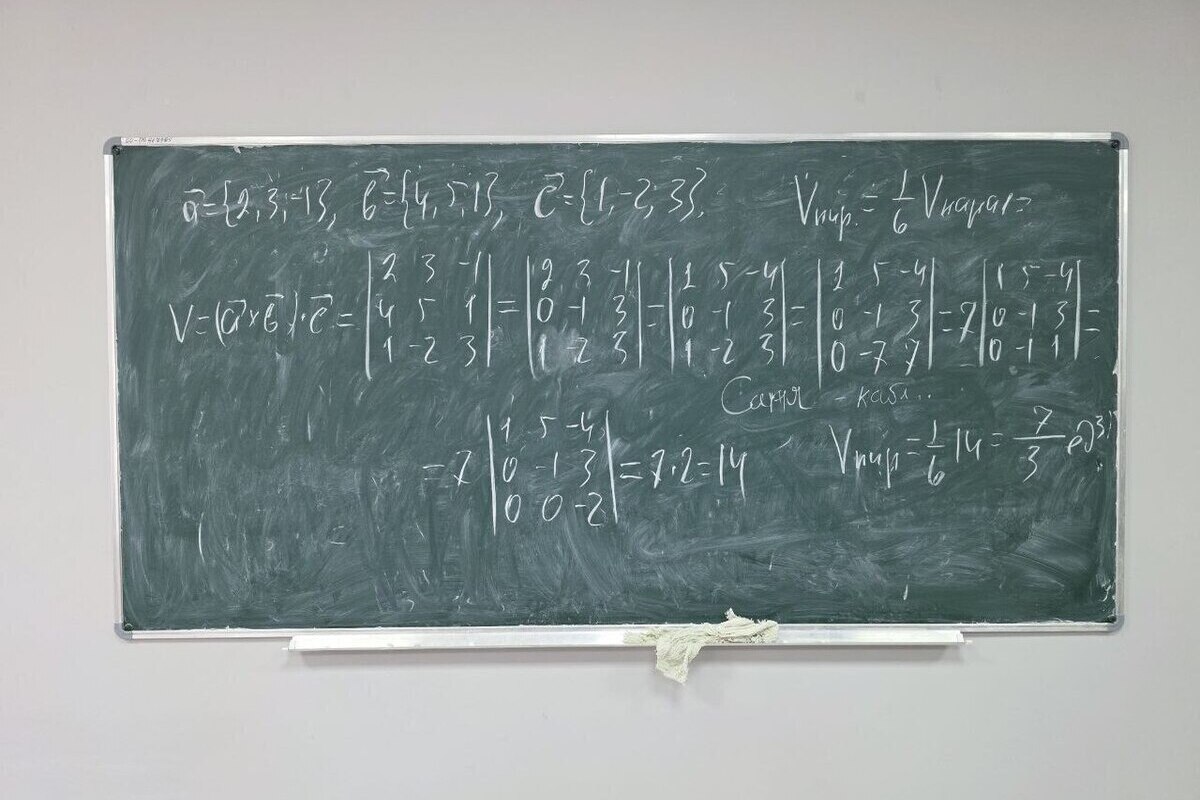 a⃗={2; 3; -1}, в⃗={4, 5, 1}, c⃗={1, -2, 3}. Vпир. = 1/6 Vпарал=
V=(a⃗×в⃗)·c⃗ = |2 3 -1; 4 5 1; 1 -2 3| = |2 3 -1; 0 -1 3; 1 -2 3| = |1 5 -4; 0 -1 3; 1 -2 3| = |1 5 -4; 0 -1 3; 0 -7 7| = 7 |1 5 -4; 0 -1 3; 0 -1 1| =
Саня - кабл..
= 7 |1 5 -4; 0 -1 3; 0 0 -2| = 7·2 = 14 Vпир = 1/6 14 = 7/3 ед³.